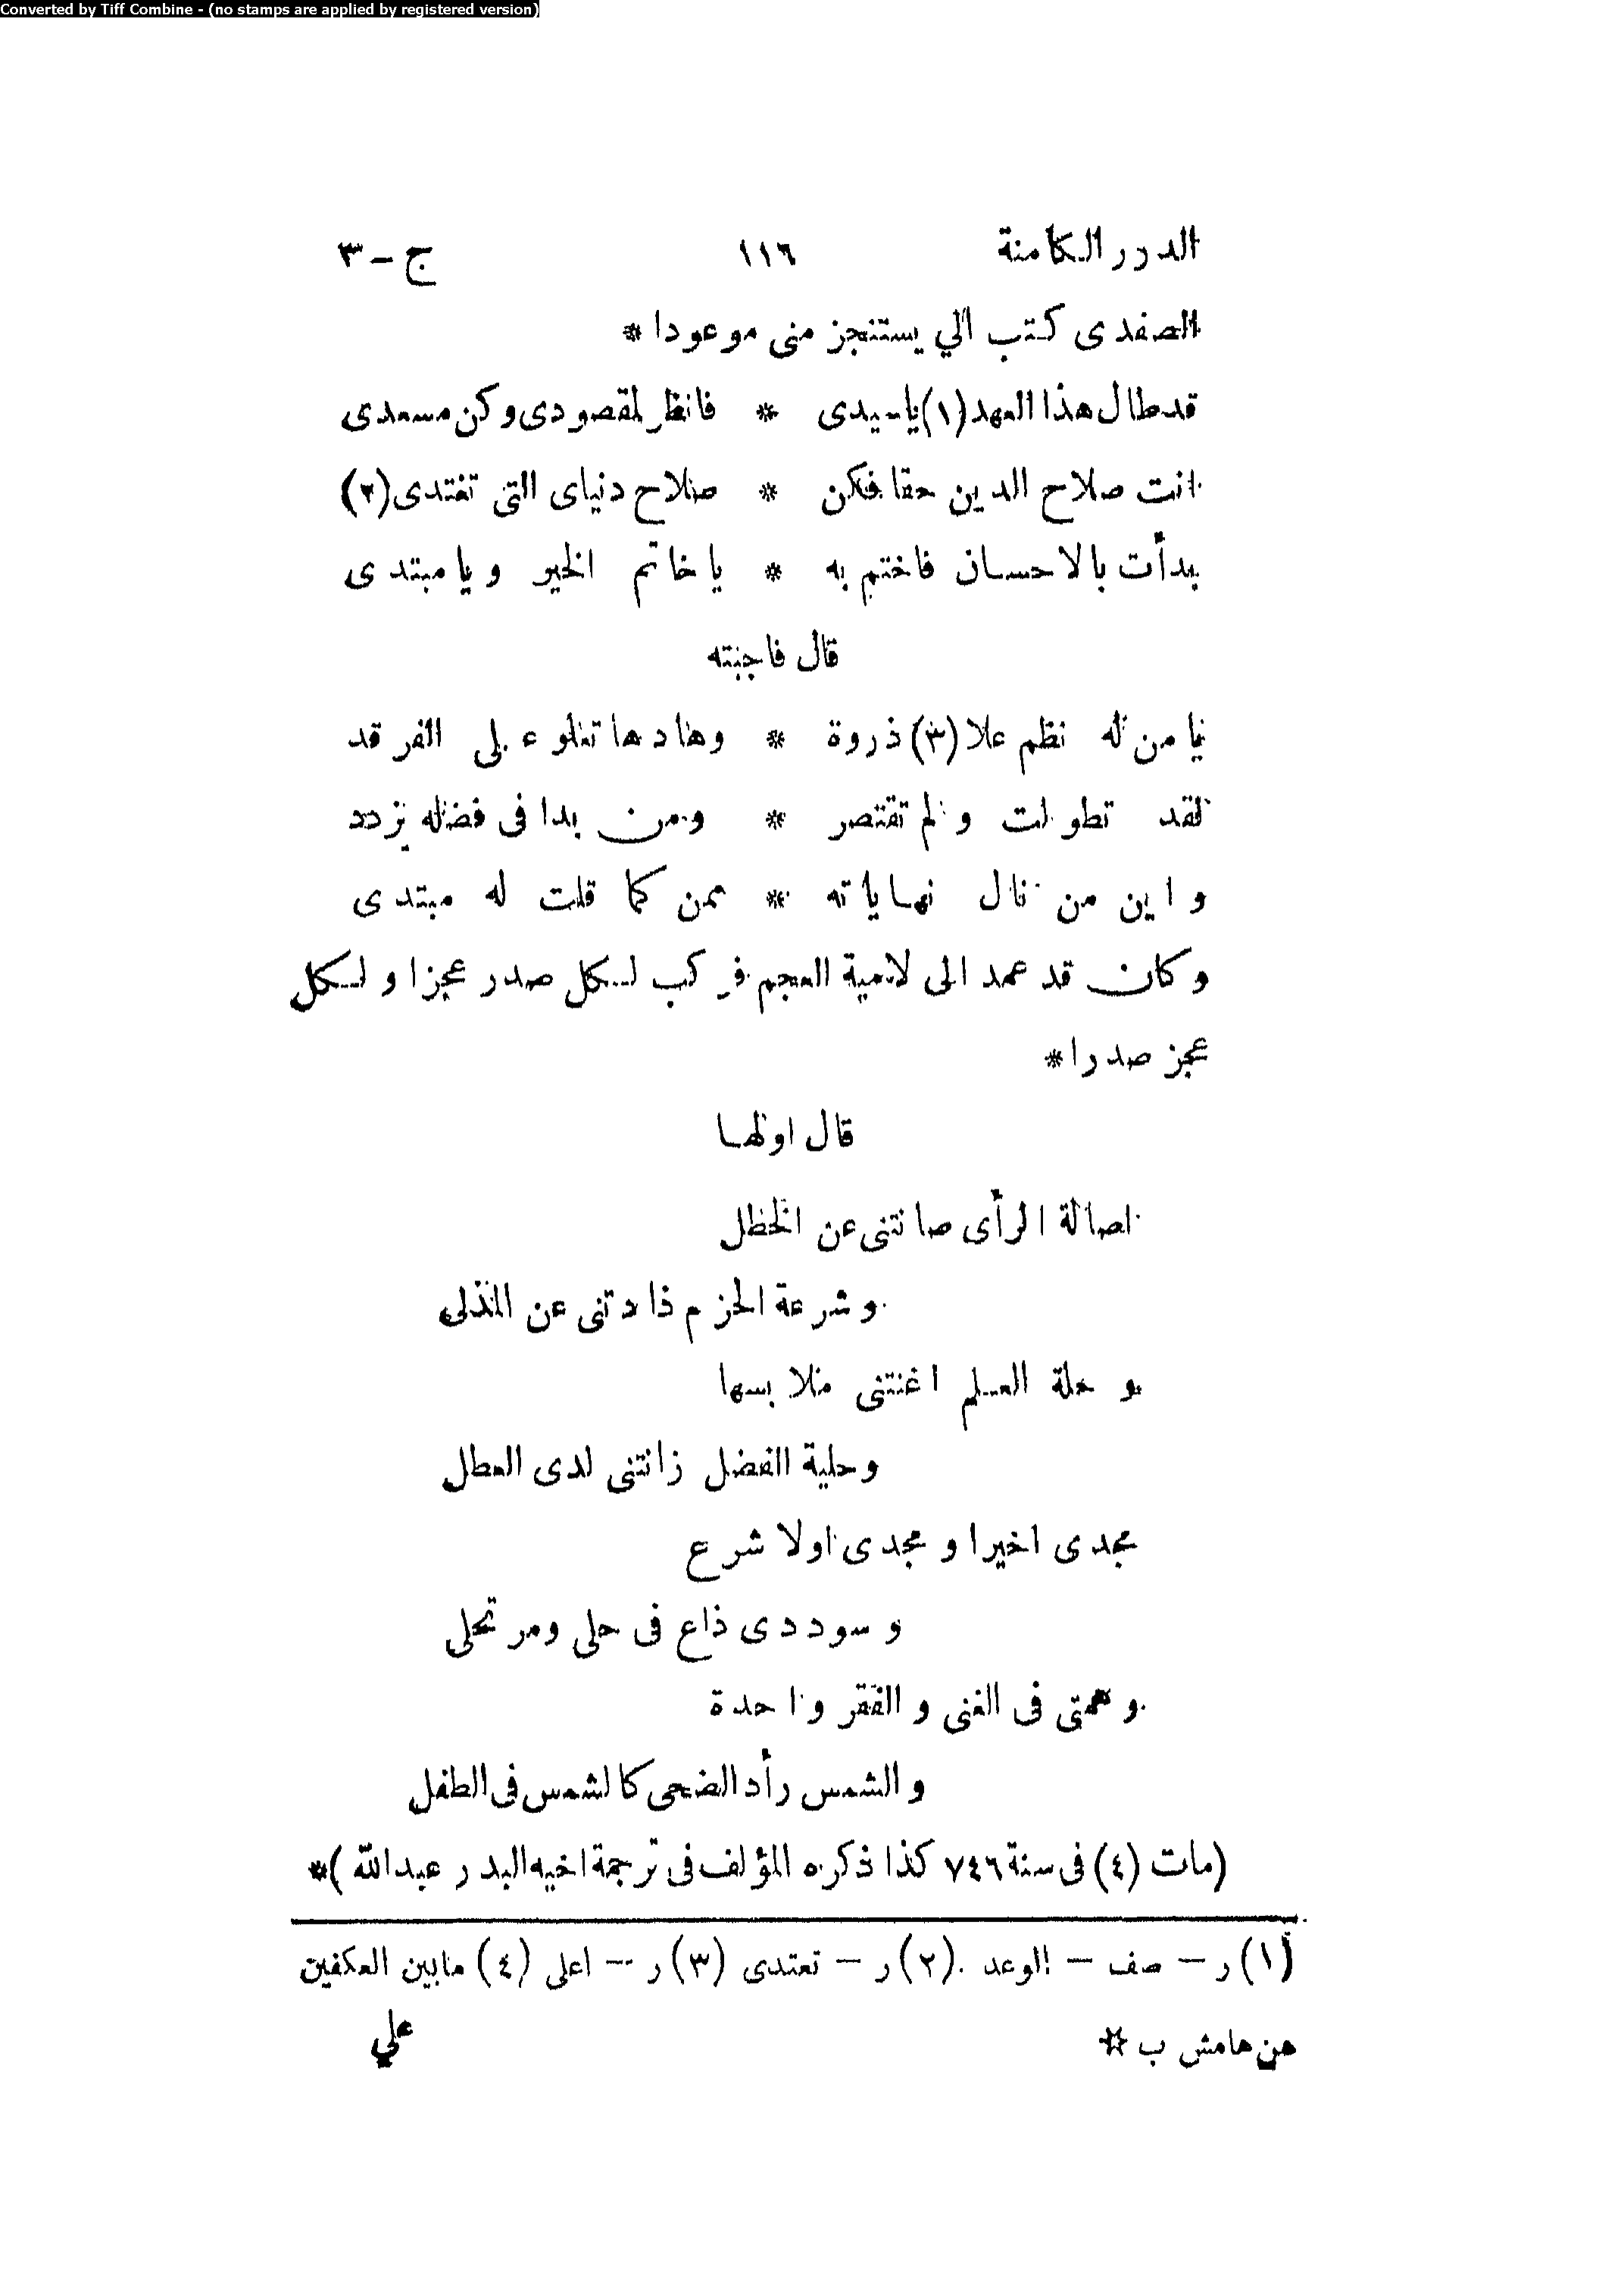 Converted by Tiff Combine - (no stamps are applied by registered version)
الدرر الكامنة ١١٦ ج - ٣
الصفدى كتب الي يستنجز منى موعودا *
قد طال هذا العهد (١) يا سيدى * فانظر لمقصودى وكن مسعدى
انت صلاح الدين حقا فكن * صلاح دنياى التى تغتدى (٢)
بدأت بالاحسان فاختم به * يا خاتم الخير ويا مبتدى
قال فاجبته
يا من له نظم علا (٣) ذروة * وهادها تعلو على الفرقد
لقد تطولت ولم تقتصر * ومن بدا فى فضله يزدد
واين من نال نهاياته * ممن كما قلت له مبتدى
وكان قد عمد الى لامية العجم فركب لكل صدر عجزا ولكل
عجز صدرا *
قال اولها
اصالة الرأى صانتنى عن الخطل
وشرعة الحزم ذادتنى عن المذل
وحلة العلم اغنتنى ملابسها
وحلية الفضل زانتنى لدى العطل
مجدى اخيرا ومجدى اولا شرع
وسوددى ذاع فى حلى ومرتحلى
وهمتى فى الغنى والفقر واحدة
والشمس رأد الضحى كالشمس فى الطفل
(مات (٤) فى سنة ٧٤٦ كذا ذكره المؤلف فى ترجمة اخيه البدر عبدالله) *
(١) ر - صف - الوعد . (٢) ر - تعتدى (٣) ر - اعلى (٤) مابين العكفين
من هامش ب ☆ علي